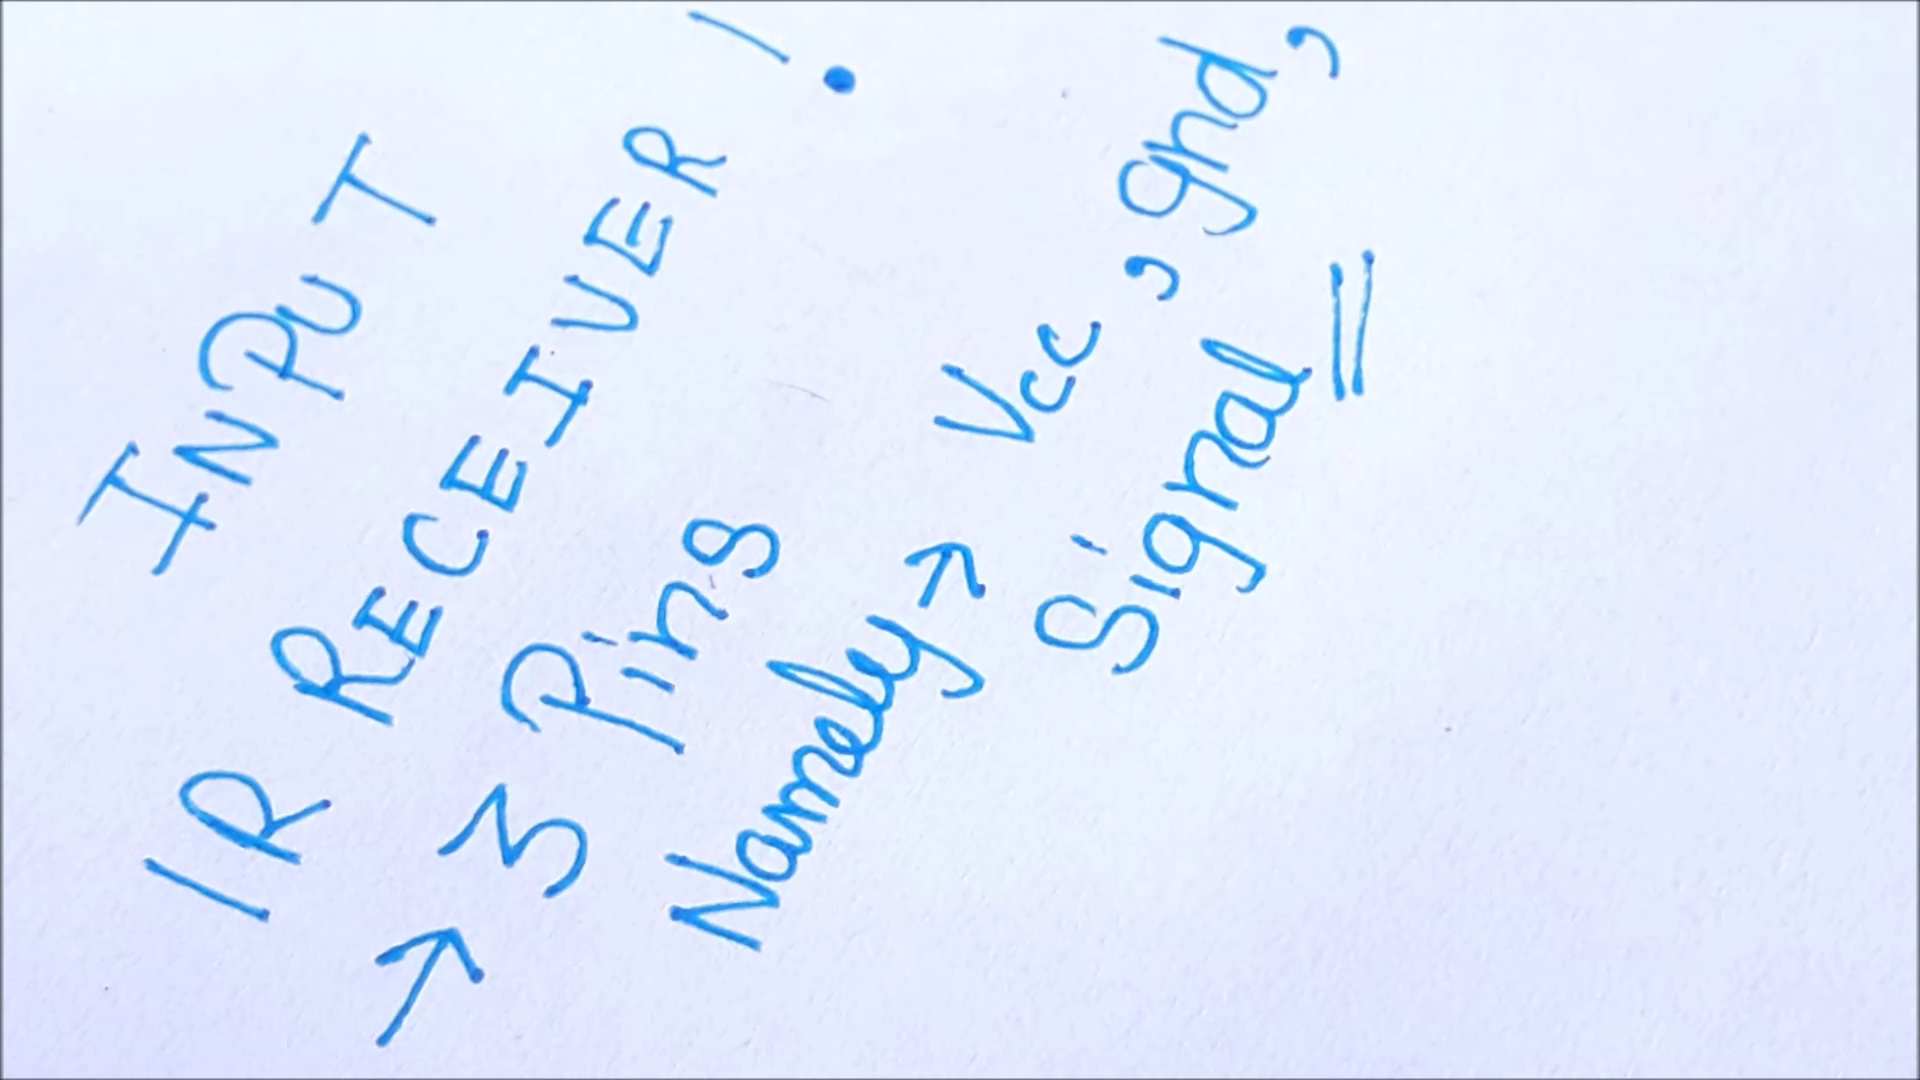 INPUT
IR RECEIVER !
→ 3 Pins
Namely → Vcc, gnd,
Signal